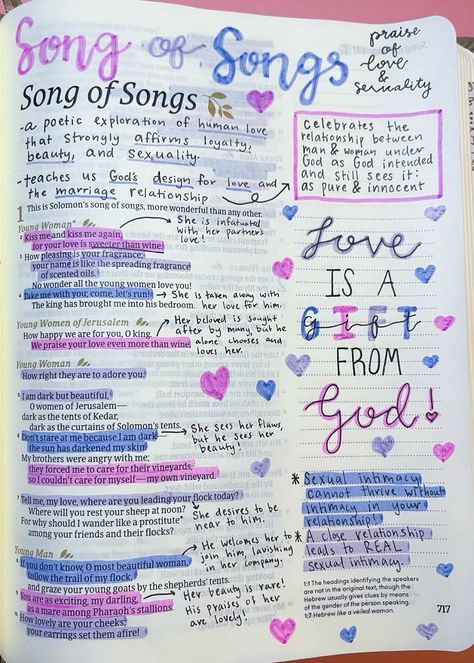 Song of Songs
praise
of
love
&
sexuality
Song of Songs
-a poetic exploration of human love
that strongly affirms loyalty,
beauty, and sexuality.
-teaches us God's design for love and
the marriage relationship
Celebrates the
relationship between
man & woman under
God as God intended
and still sees it:
as pure & innocent
1 This is Solomon's song of songs, more wonderful than any other.
Young Woman*
2 Kiss me and kiss me again,
for your love is sweeter than wine.
She is infatuated
with her partner's
love!
3 How pleasing is your fragrance;
your name is like the spreading fragrance
of scented oils.
No wonder all the young women love you!
4 Take me with you; come, let's run!
The king has brought me into his bedroom.
She is taken away with
her love for him.
Young Women of Jerusalem
How happy we are for you, O king.
We praise your love even more than wine.
Her beloved is sought
after by many, but he
alone chooses and
loves her.
Young Woman
How right they are to adore you.
5 I am dark but beautiful,
O women of Jerusalem—
dark as the tents of Kedar,
dark as the curtains of Solomon's tents.
6 Don't stare at me because I am dark—
the sun has darkened my skin.
My brothers were angry with me;
they forced me to care for their vineyards,
so I couldn't care for myself—my own vineyard.
She sees her flaws,
but he sees her
beauty!
7 Tell me, my love, where are you leading your flock today?
Where will you rest your sheep at noon?
For why should I wander like a prostitute*
among your friends and their flocks?
She desires to be
near to him.
Young Man
8 If you don't know, O most beautiful woman,
follow the trail of my flock,
and graze your young goats by the shepherds' tents.
He welcomes her to
join him, lavishing
in her company.
9 You are as exciting, my darling,
as a mare among Pharaoh's stallions.
10 How lovely are your cheeks;
your earrings set them afire!
Her beauty is rare!
His praises of her
are lovely!
Love
IS A
GIFT
FROM
God!
* Sexual intimacy
cannot thrive without
intimacy in your
relationship!
* A close relationship
leads to REAL
sexual intimacy.
1:1 The headings identifying the speakers
are not in the original text, though the
Hebrew usually gives clues by means
of the gender of the person speaking.
1:7 Hebrew like a veiled woman.
717